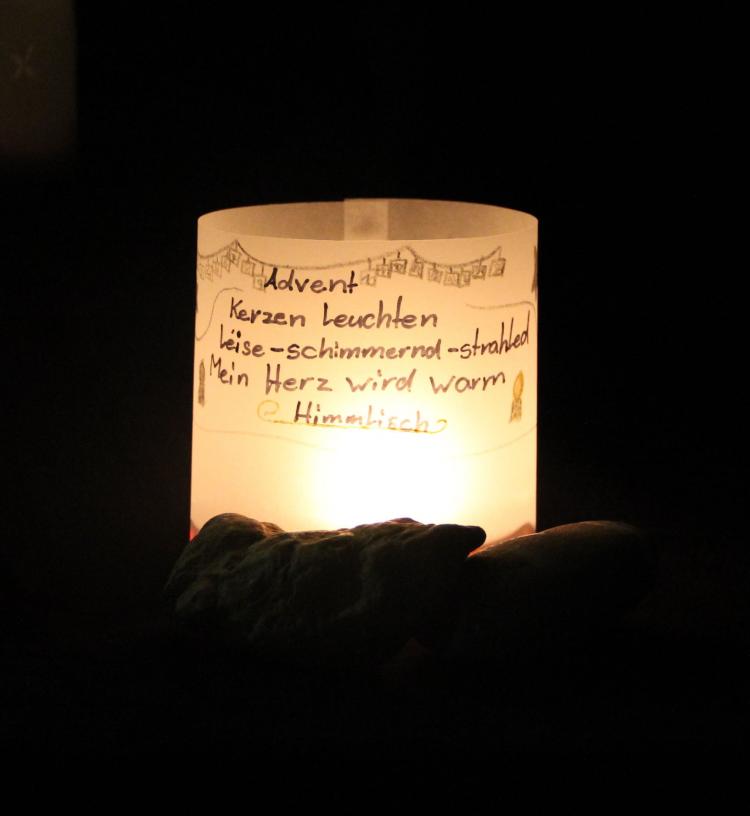 Advent
Kerzen Leuchten
Leise-schimmernd-strahled
Mein Herz wird warm
Himmlisch